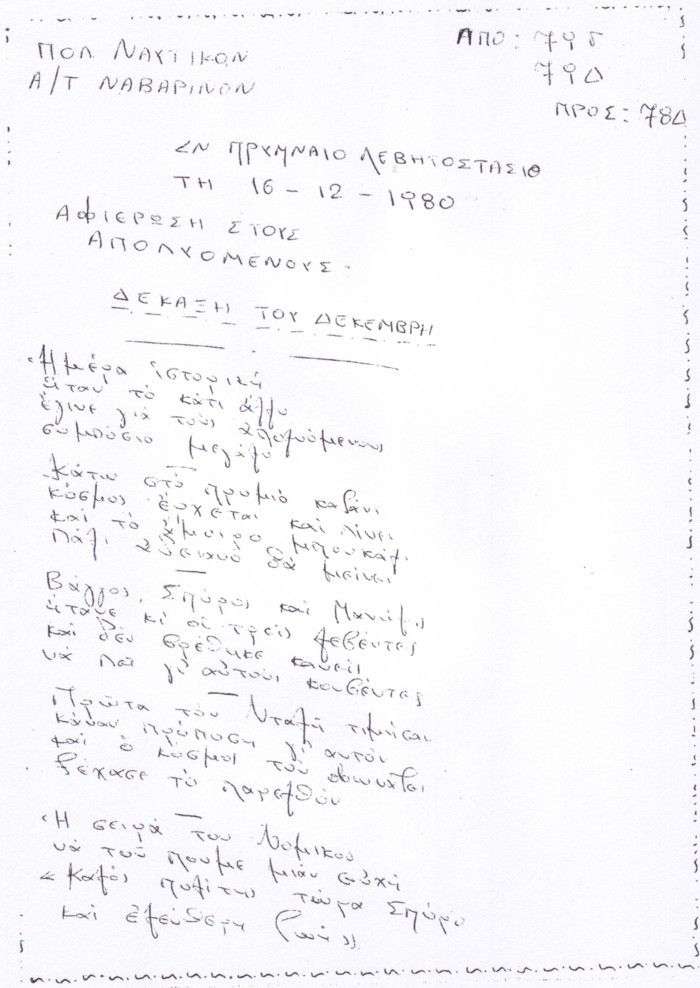 ΠΟΛ ΝΑΥΤΙΚΟΝ
Α/Τ ΝΑΒΑΡΙΝΟΝ
ΑΠΟ: 79Γ
79Δ
ΠΡΟΣ: 78Δ
ΕΝ ΠΡΥΜΝΑΙΟ ΛΕΒΗΤΟΣΤΑΣΙΟ
ΤΗ 16 - 12 - 1980
ΑΦΙΕΡΩΣΗ ΣΤΟΥΣ
ΑΠΟΛΥΟΜΕΝΟΥΣ.
ΔΕΚΑΞΗ ΤΟΥ ΔΕΚΕΜΒΡΗ
Ἡ μέρα ἱστορική
ἤταν τό κάτι ἄλλο
ἔγινε γιά τούς ἀπολυόμενους
συμπόσιο μεγάλο
Κάτω στό πρυμιό καζάνι
κόσμος ἔρχεται καί πίνει
καί τό ἄμοιρο μπουκάλι
πάλι ἀδειανό θά μείνει
Βάγγος, Σπύρος καί Μανώλης
ἤτανε κι οἱ τρεῖς λεβέντες
καί δέν βρέθηκε κανείς
νά πεῖ γι' αὐτούς κουβέντες
Πρῶτα τόν Νταλή τιμήσαν
κάναν πρόποση γι' αὐτόν
καί ὁ κόσμος τόν
ξέχασε τό παρελθόν
Ἡ σειρά του Νομικού
νά τοῦ ποῦμε μιάν εὐχή
« Καλός πολίτης τώρα Σπύρο
καί ἐλεύθερη ζωή »